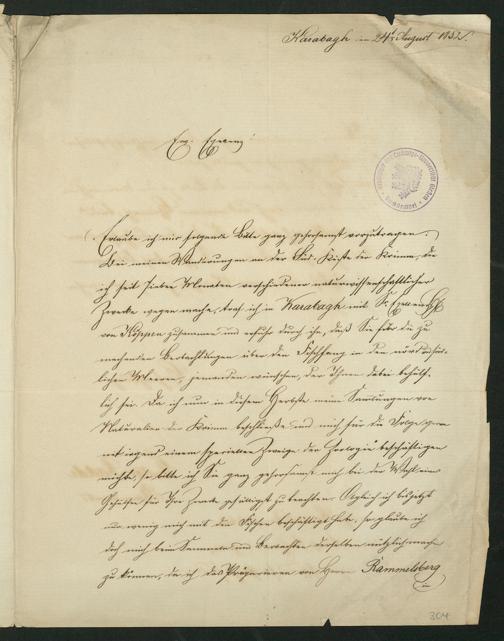 Karabagh den 24t August 1852.
Ew. Excenz!
Erlaube ich mir folgende Bitte ganz gehorsamst vorzutragen.
Bei meinen Wanderungen an der Süd-Küste der Krimm, die
ich seit sieben Monaten verschiedener naturwissenschaftlicher
Zwecke wegen mache, traf ich in Karabagh mit Sr. Excellenz
von Köppen zusammen und erfuhr durch ihn, daß Sie für die zu
machenden Beobachtungen über den Fischfang in den
lichen Meeren, jemanden wünschen, der Ihnen dabei behülf-
lich sei. Da ich nun in diesem Herbste mein Sammlungen von
Naturalien der Krimm beschließe und mich für die Folge gern
mit irgend einem speciellen Zweige der Zoologie beschäftigen
möchte, so bitte ich Sie ganz gehorsamst mich bei der Wahl eines
Gehülfen für Ihre Zwecke gefälligst zu beachten. Obgleich ich bis jetzt
nur wenig mich mit den Fischen beschäftigt habe, so glaube ich
doch mich beim Sammeln und Beobachten derselben nützlich machen
zu können, da ich das Präpariren von Herrn Rammelsberg
in
304